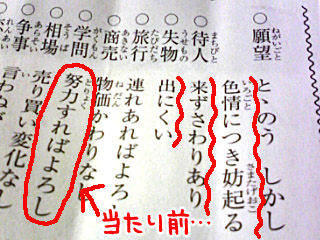 ○願望 とゝのう しかし
ねがいごと
色情につき妨起る
いろごと さまたげおこ
○待人 来ずさわりあり
まちびと
○失物 出にくい
うせもの
○旅行 連れあればよろ
たびだち
○商売 物価かわりなし
あきない ねだん
○学問 努力すればよろし
がくもん どりょく
○相場 売り買い変化なし
そうば
○争事 言わぬが
あらそい
当たり前…